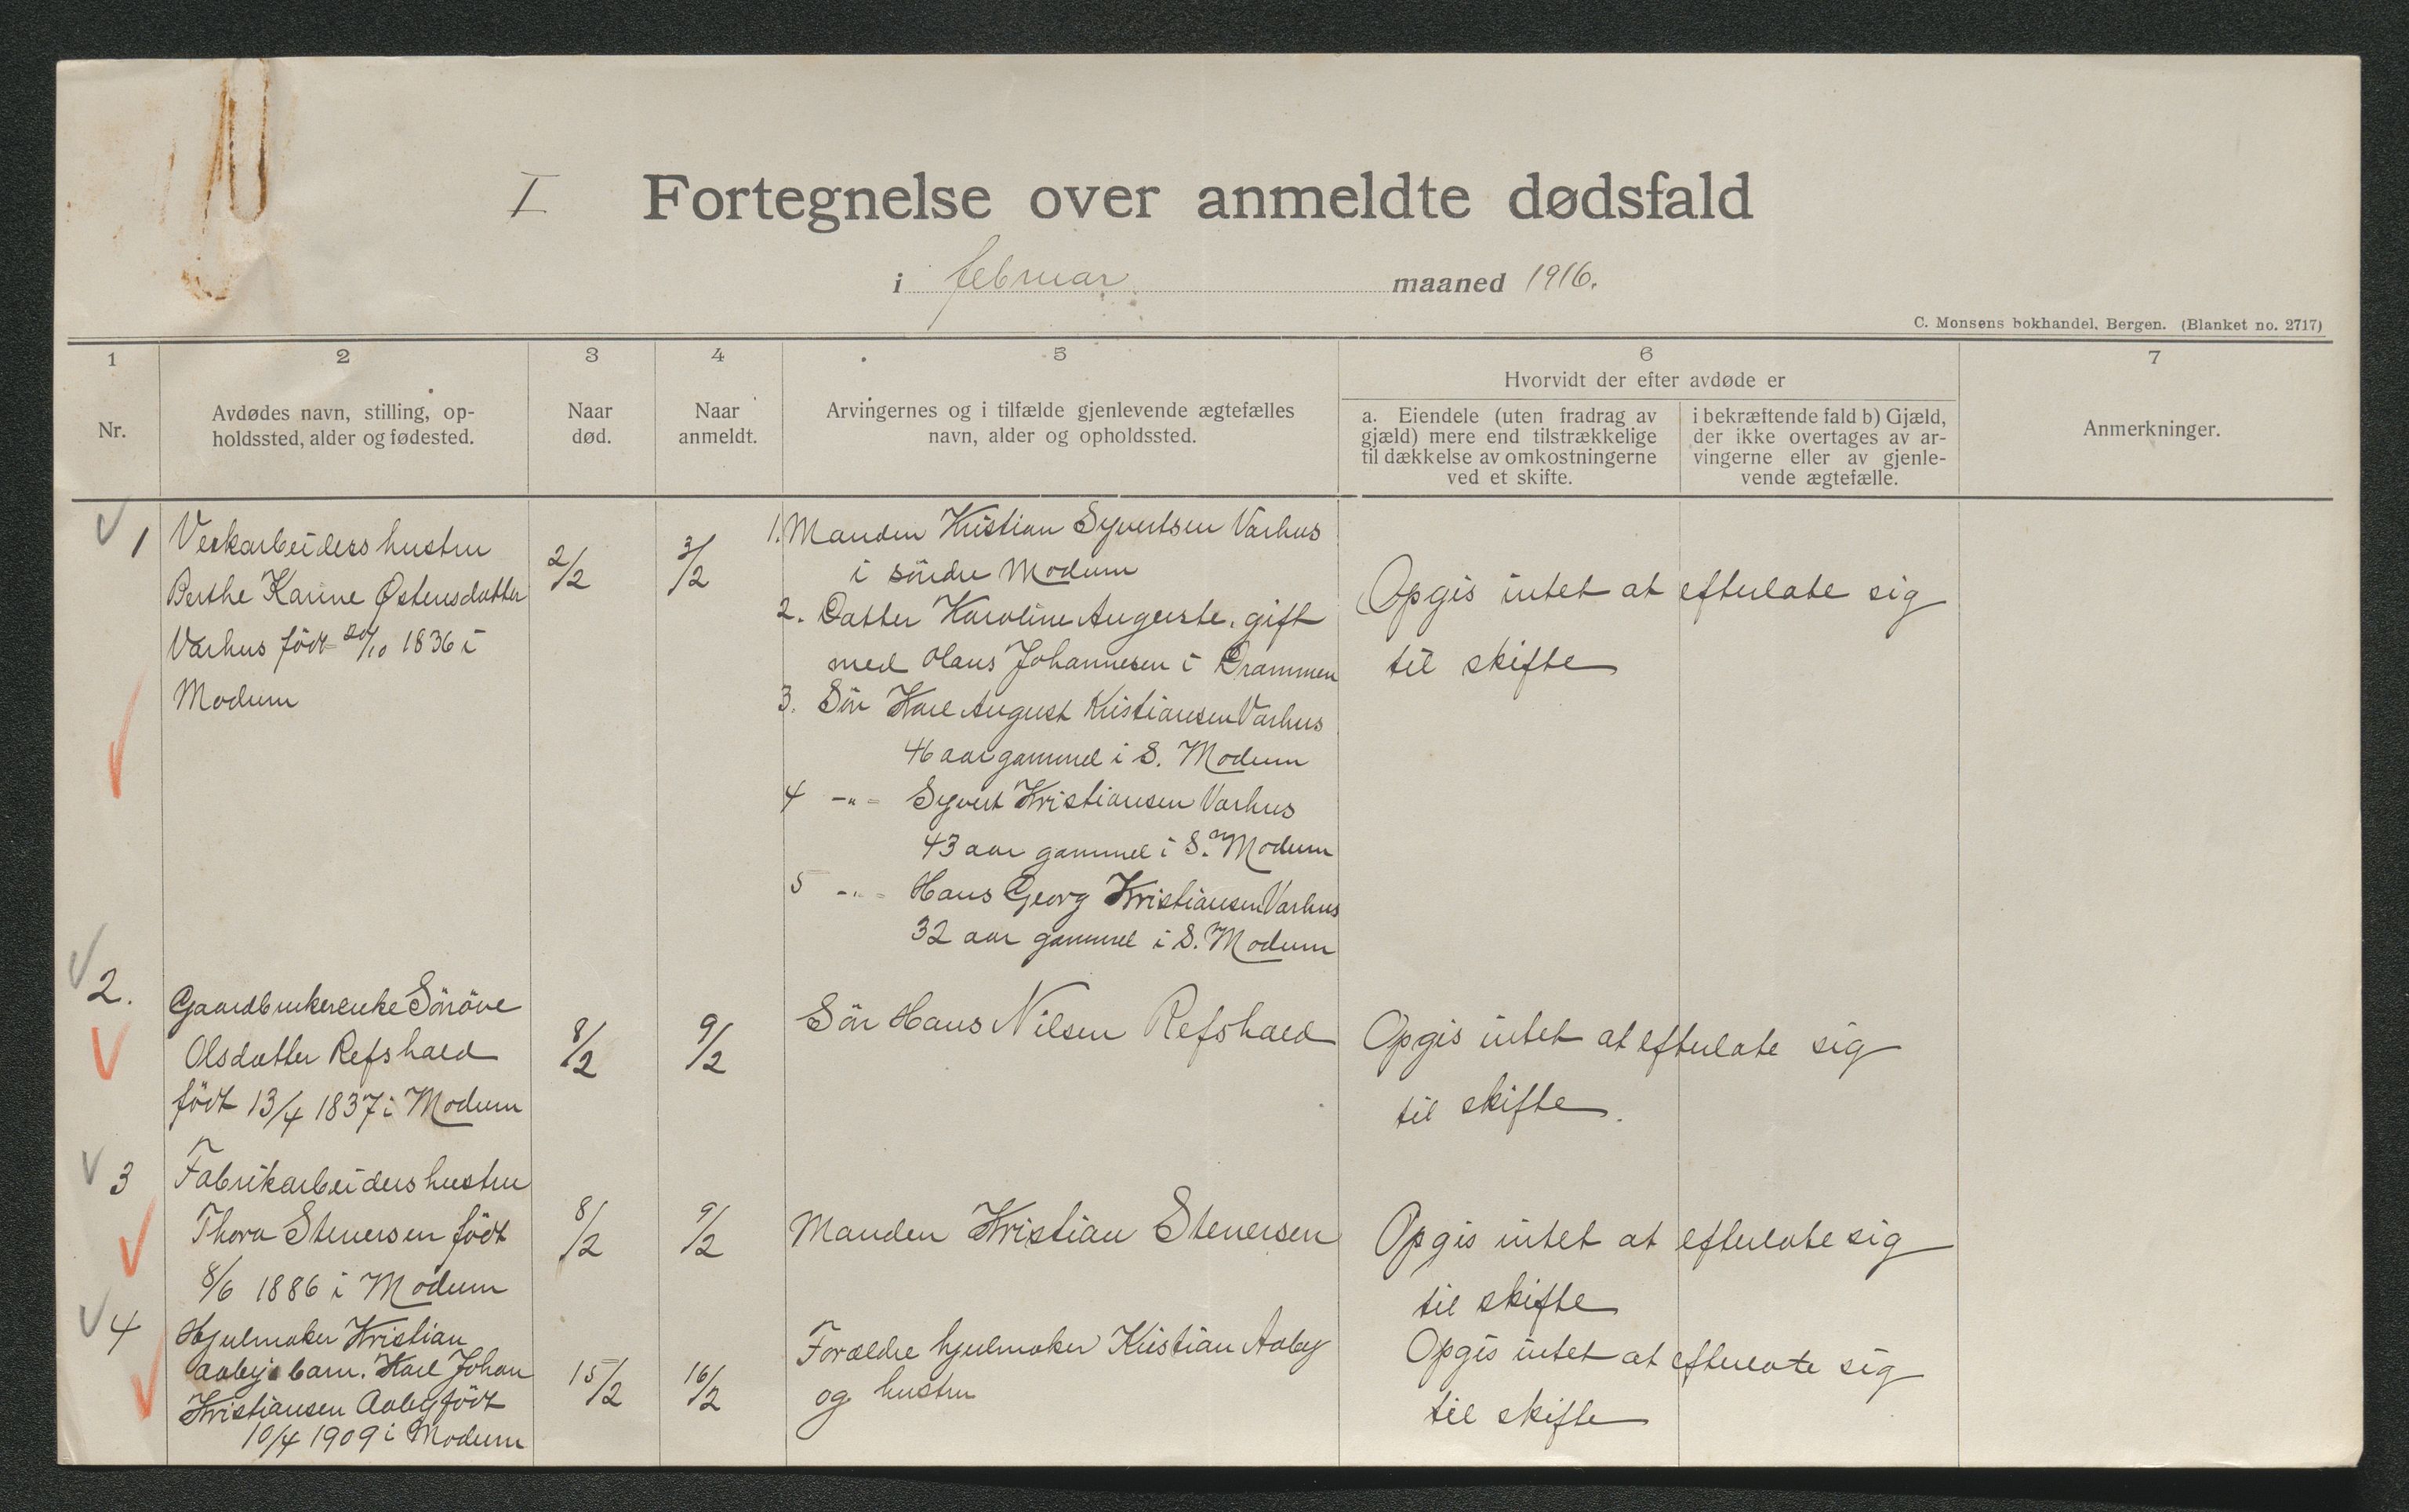 I Fortegnelse over anmeldte dødsfald
i februar maaned 1916.
C. Monsens bokhandel, Bergen. (Blanket no. 2717)
1
Nr.
2
Avdødes navn, stilling, op-
holdssted, alder og fødested.
3
Naar
død.
4
Naar
anmeldt.
5
Arvingernes og i tilfælde gjenlevende ægtefælles
navn, alder og opholdssted.
6
Hvorvidt der efter avdøde er
a. Eiendele (uten fradrag av
gjæld) mere end tilstrækkelige
til dækkelse av omkostningerne
ved et skifte.
i bekræftende fald b) Gjæld,
der ikke overtages av ar-
vingerne eller av gjenle-
vende ægtefælle.
7
Anmerkninger.
1
Verkarbeiders hustru
Berthe Karine Østensdatter
Varhus født 20/10 1836 i
Modum
2/2
3/2
1. Manden Kristian Syvertsen Varhus
i söndre Modum
2. Datter Karoline Auguste, gift
med Olaus Johannesen i Drammen
3. Sön Karl August Kristiansen Varhus
46 aar gammel i S. Modum
4 -"- Syvert Kristiansen Varhus
43 aar gammel i S. Modum
5 -"- Hans Georg Kristiansen Varhus
32 aar gammel i S. Modum
Opgis intet at efterlate sig
til skifte
2.
Gaardbrukerenke Sönöve
Olsdatter Refshald
födt 13/4 1837 i Modum
8/2
9/2
Sön Hans Nilsen Refshald
Opgis intet at efterlate sig
til skifte.
3
Fabrikarbeiders hustru
Thora Stenersen födt
8/6 1886 i Modum
8/2
9/2
Manden Kristian Stenersen
Opgis intet at efterlate sig
til skifte
4
Hjulmaker Kristian
Aabys barn. Karl Johan
Kristiansen Aaby födt
10/4 1909 i Modum
15/2
16/2
Forældre hjulmaker Kristian Aaby
og hustru
Opgis intet at efterlate sig
til skifte